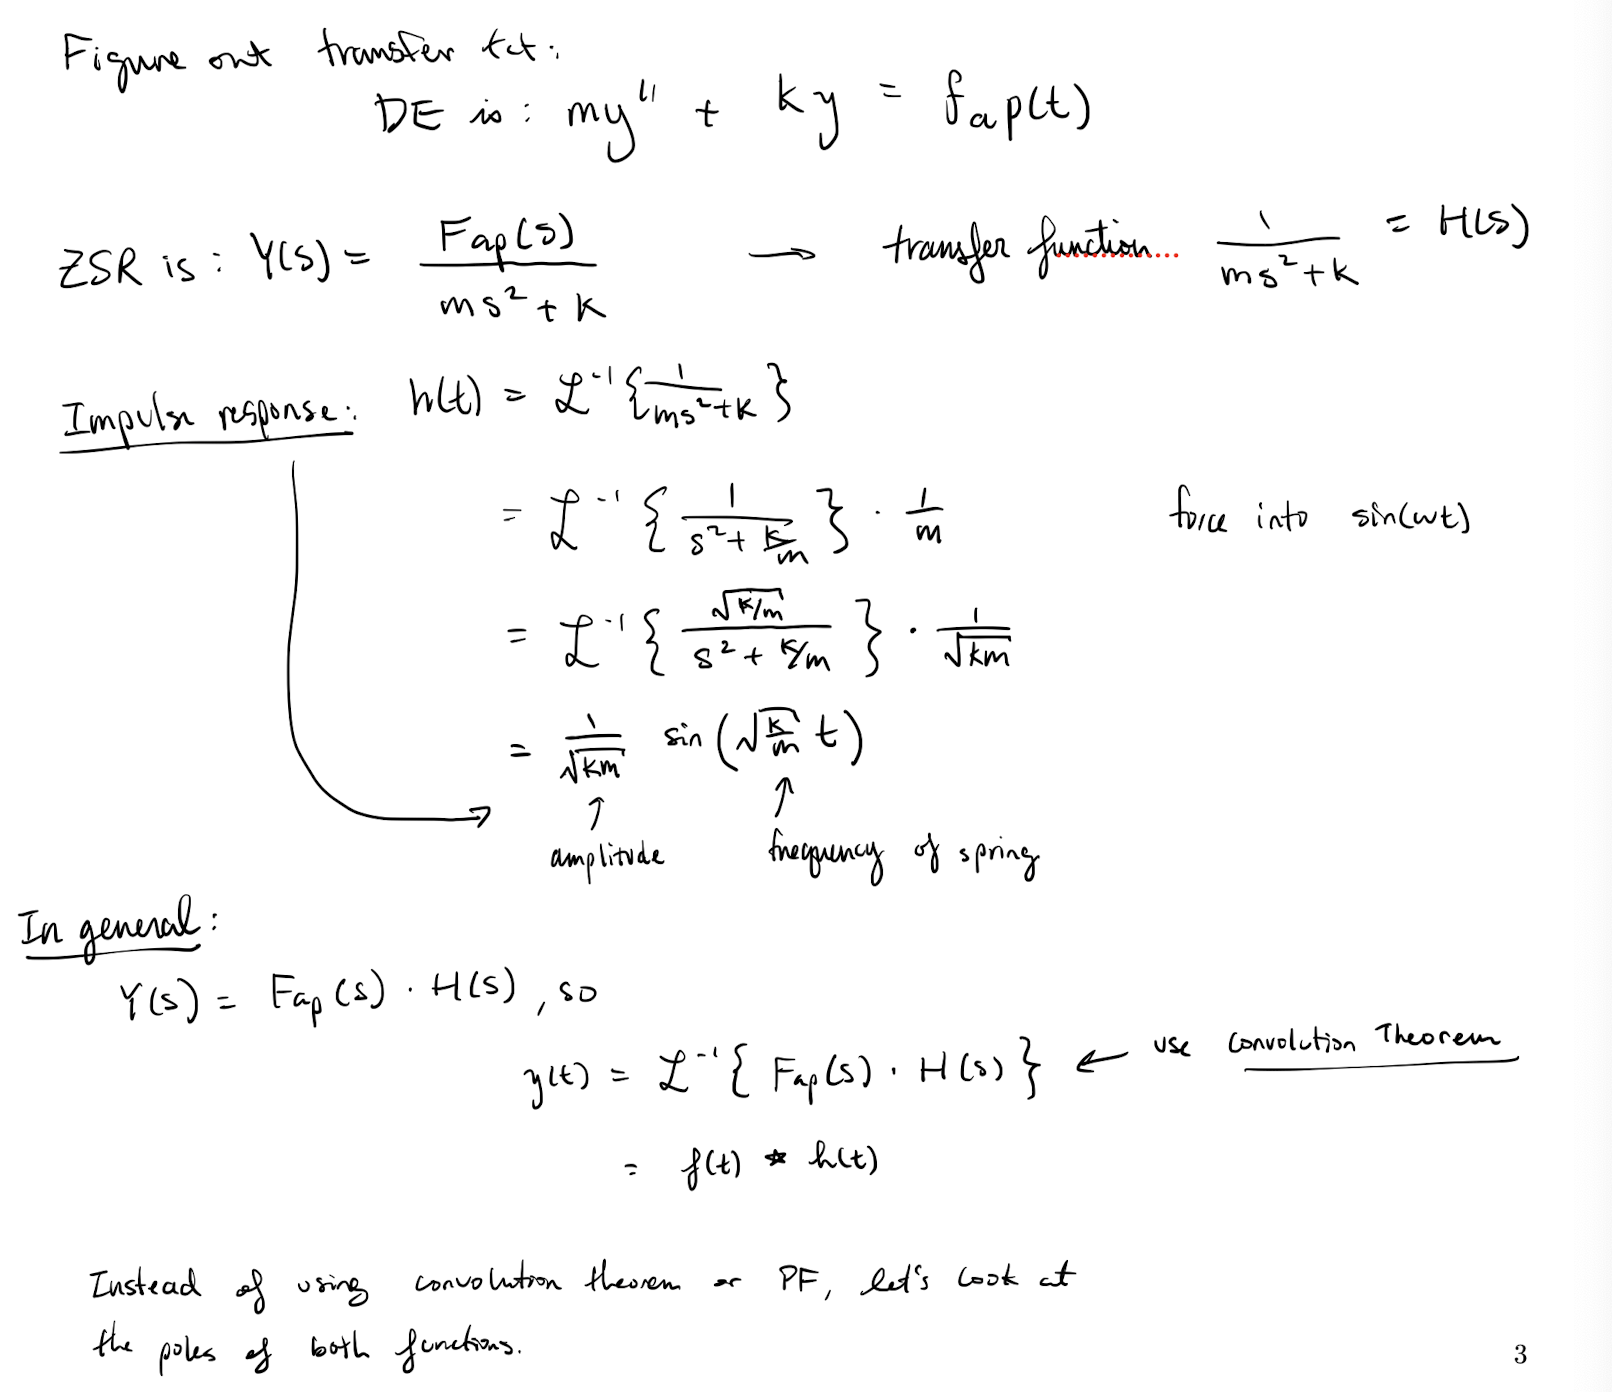 Figure out transfer fct:
DE is: my'' + ky = f_ap(t)
ZSR is: Y(s) = F_ap(s) / (ms² + k) → transfer function... 1 / (ms² + k) = H(s)
Impulse response: h(t) = ℒ⁻¹{ 1 / (ms² + k) }
= ℒ⁻¹{ 1 / (s² + k/m) } · 1/m force into sin(ωt)
= ℒ⁻¹{ √(k/m) / (s² + k/m) } · 1/√(km)
= 1/√(km) sin(√(k/m) t)
↑ ↑
amplitude frequency of spring
In general:
Y(s) = F_ap(s) · H(s), so
y(t) = ℒ⁻¹{ F_ap(s) · H(s) } ← use Convolution Theorem
= f(t) * h(t)
Instead of using convolution theorem or PF, let's look at
the poles of both functions.
3